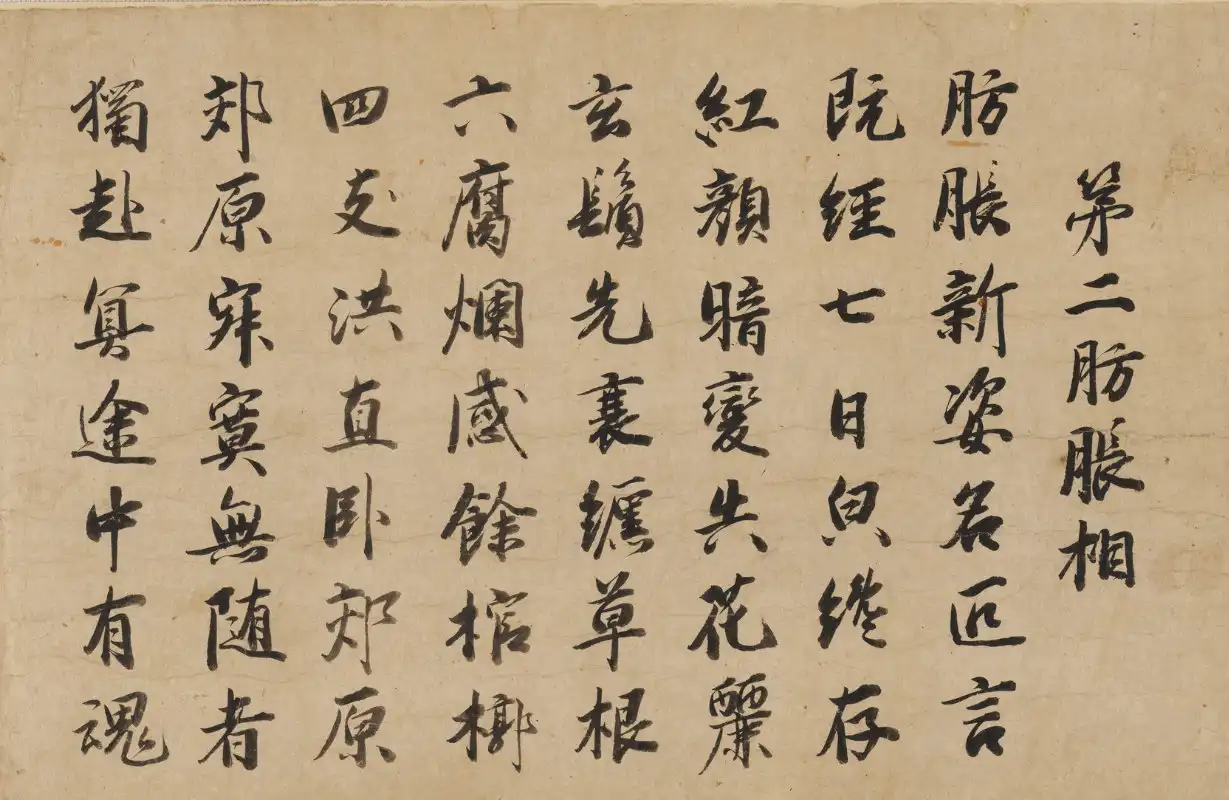 第二肪脹相
肪脹新姿名叵言
既經七日貌纔存
紅顔暗變失花麗
玄鬢先衰纏草根
六腐爛感餘棺槨
四支洪直卧郊原
郊原寂寞無随者
獨赴冥途中有魂